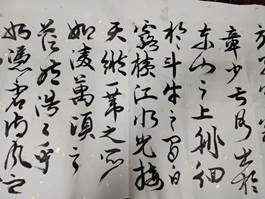 章少焉月出於
東山之上徘徊
於斗牛之間白
露橫江水光接
天縱一葦之所
如凌萬頃之
茫然浩浩乎
如憑虛御風而